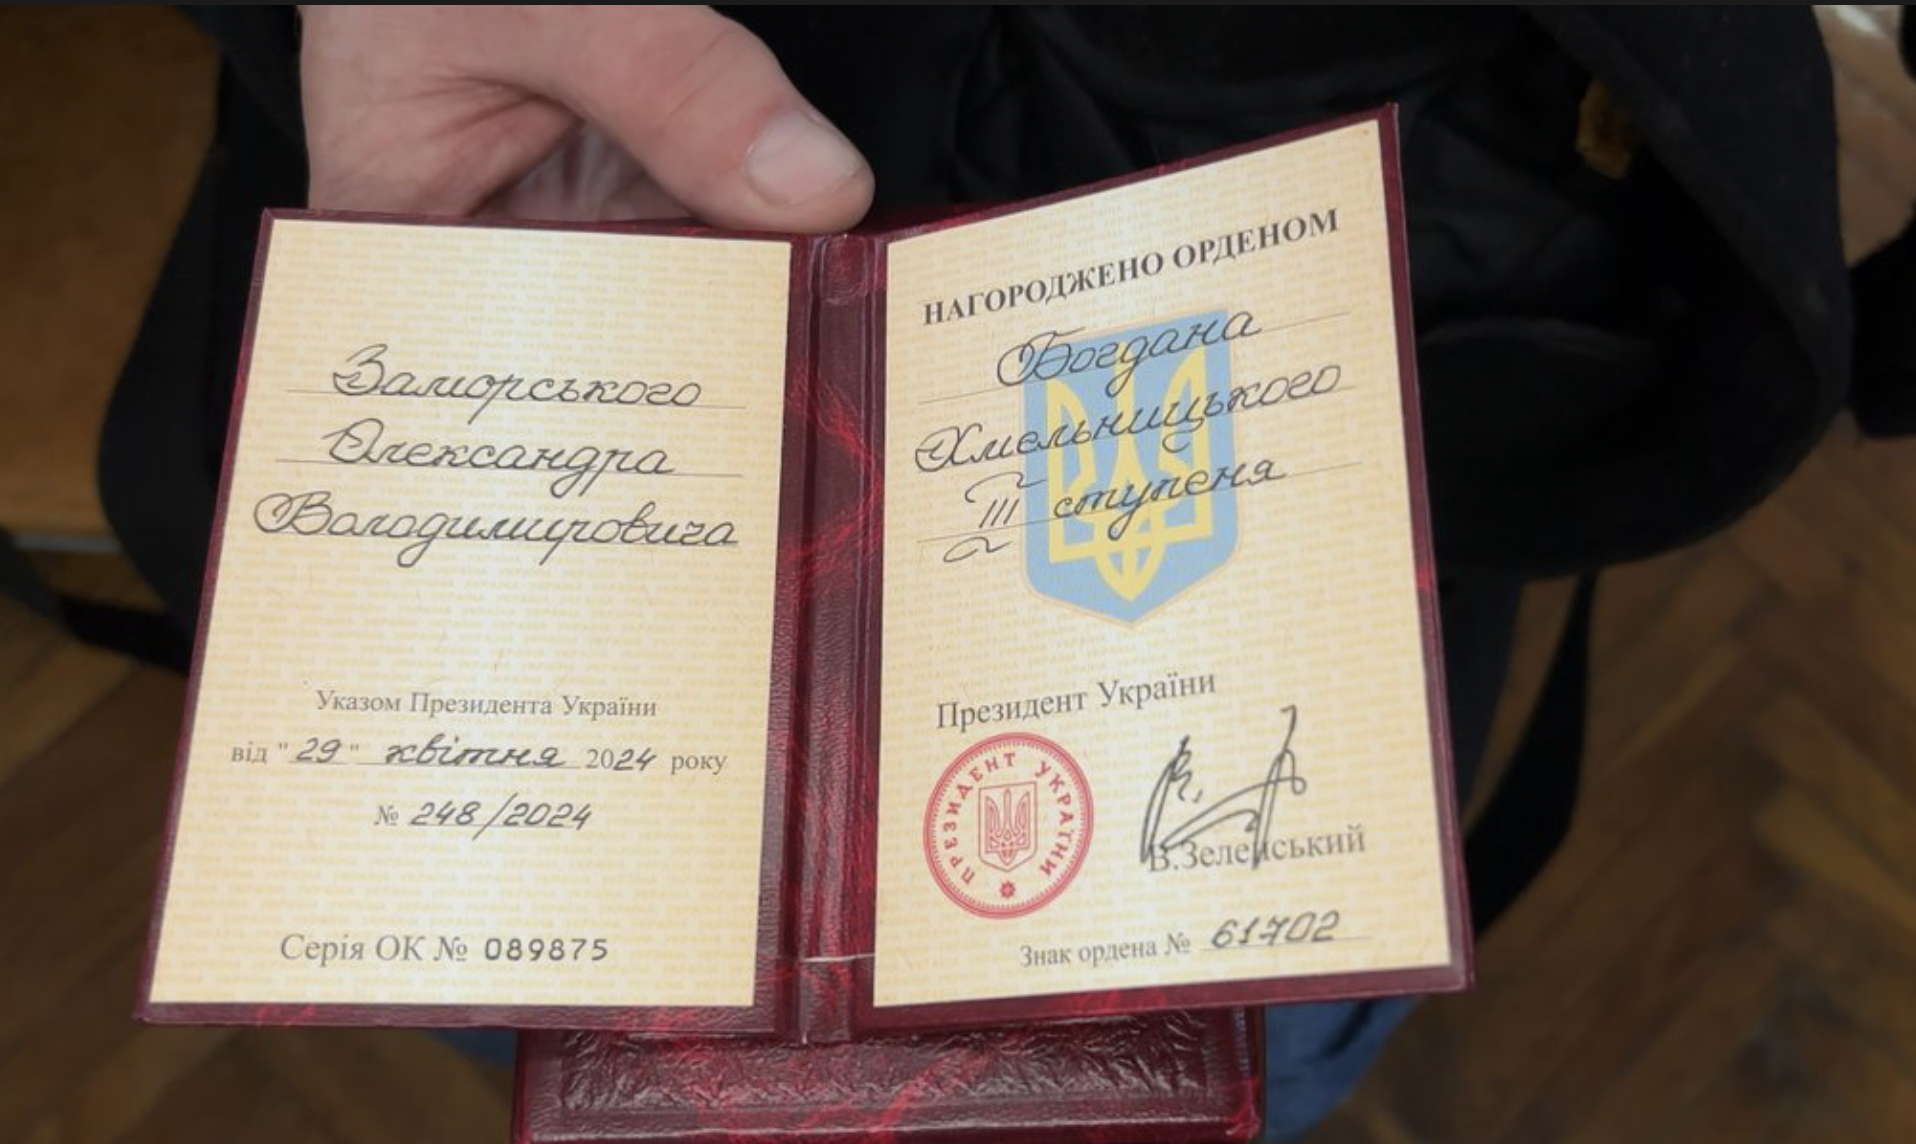 Заморського
Олександра
Володимировича
Указом Президента України
від "29" квітня 2024 року
№ 248/2024
Серія ОК № 089875
НАГОРОДЖЕНО ОРДЕНОМ
Богдана
Хмельницького
III ступеня
Президент України
ПРЕЗИДЕНТ УКРАЇНИ
В.Зеленський
Знак ордена № 61702